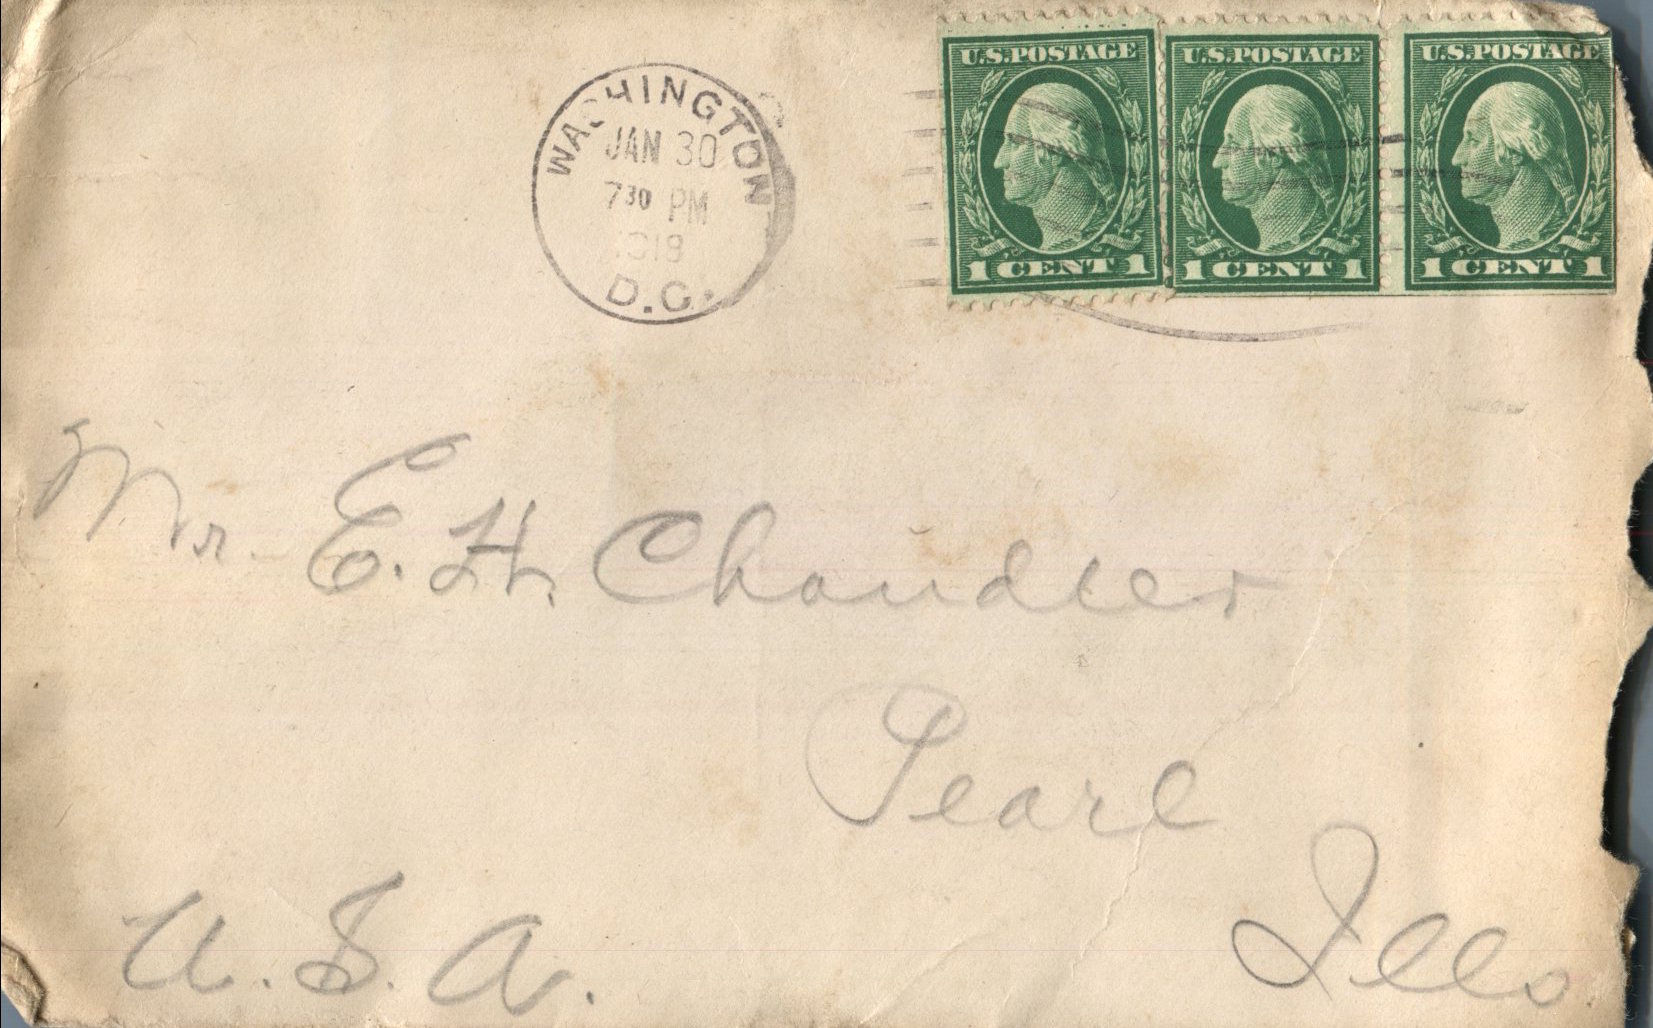 WASHINGTON
JAN 30
7 30 PM
1919
D.C.
U.S.POSTAGE
1 CENT 1
U.S.POSTAGE
1 CENT 1
U.S.POSTAGE
1 CENT 1
Mr. E. H. Chandler
Pearl
Ills
U.S.A.